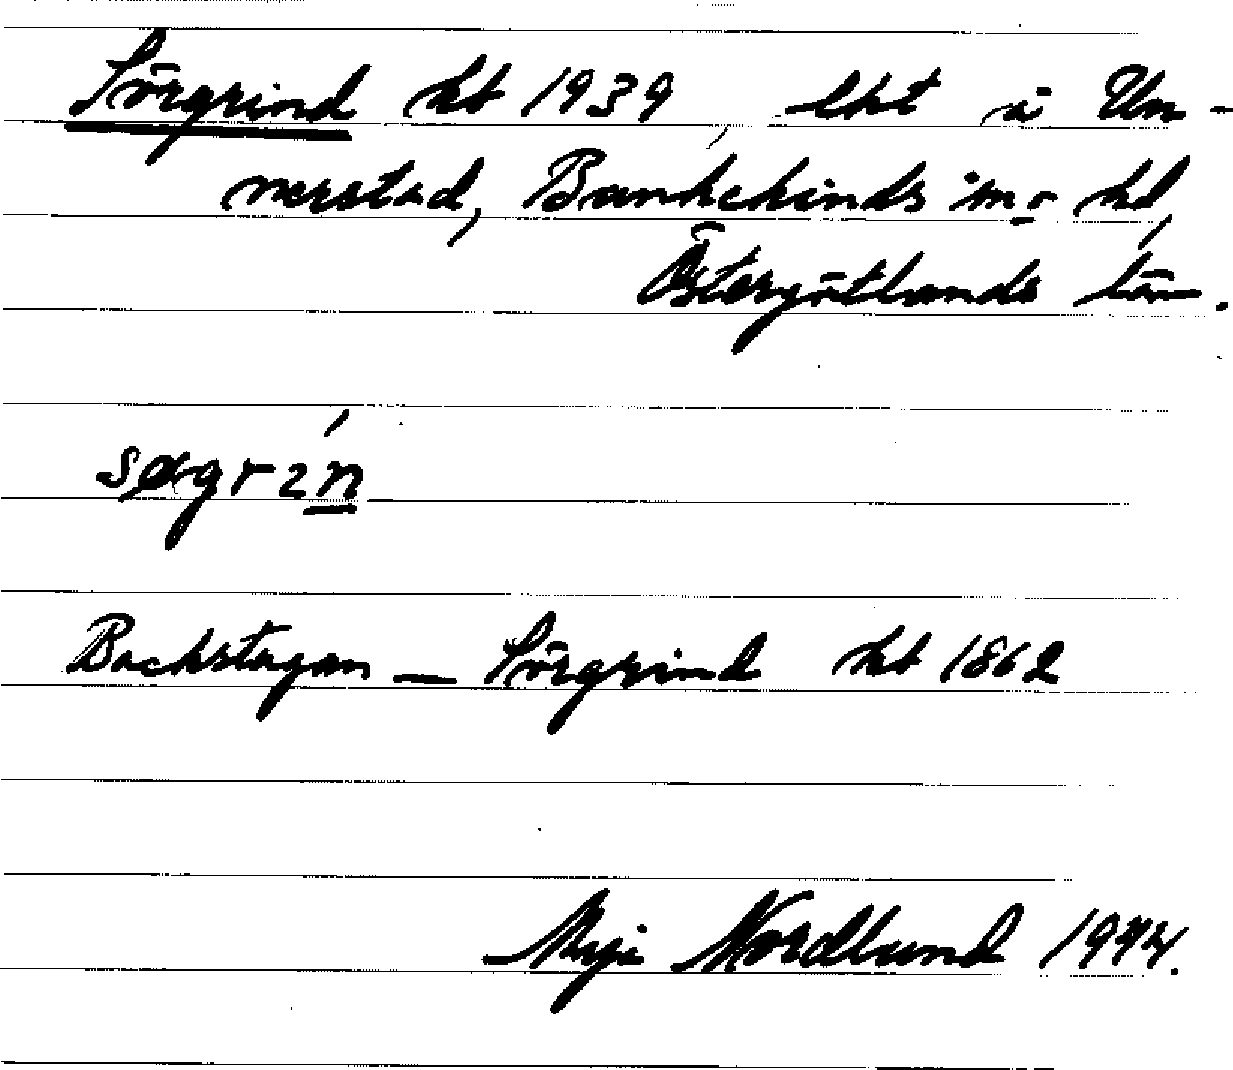 Sörgrind kb 1939, lht å Un-
nerstad, Bankekinds sn o hd,
Östergötlands län.
Backstugan — Sörgrind kb 1862
Nordlund 1944.